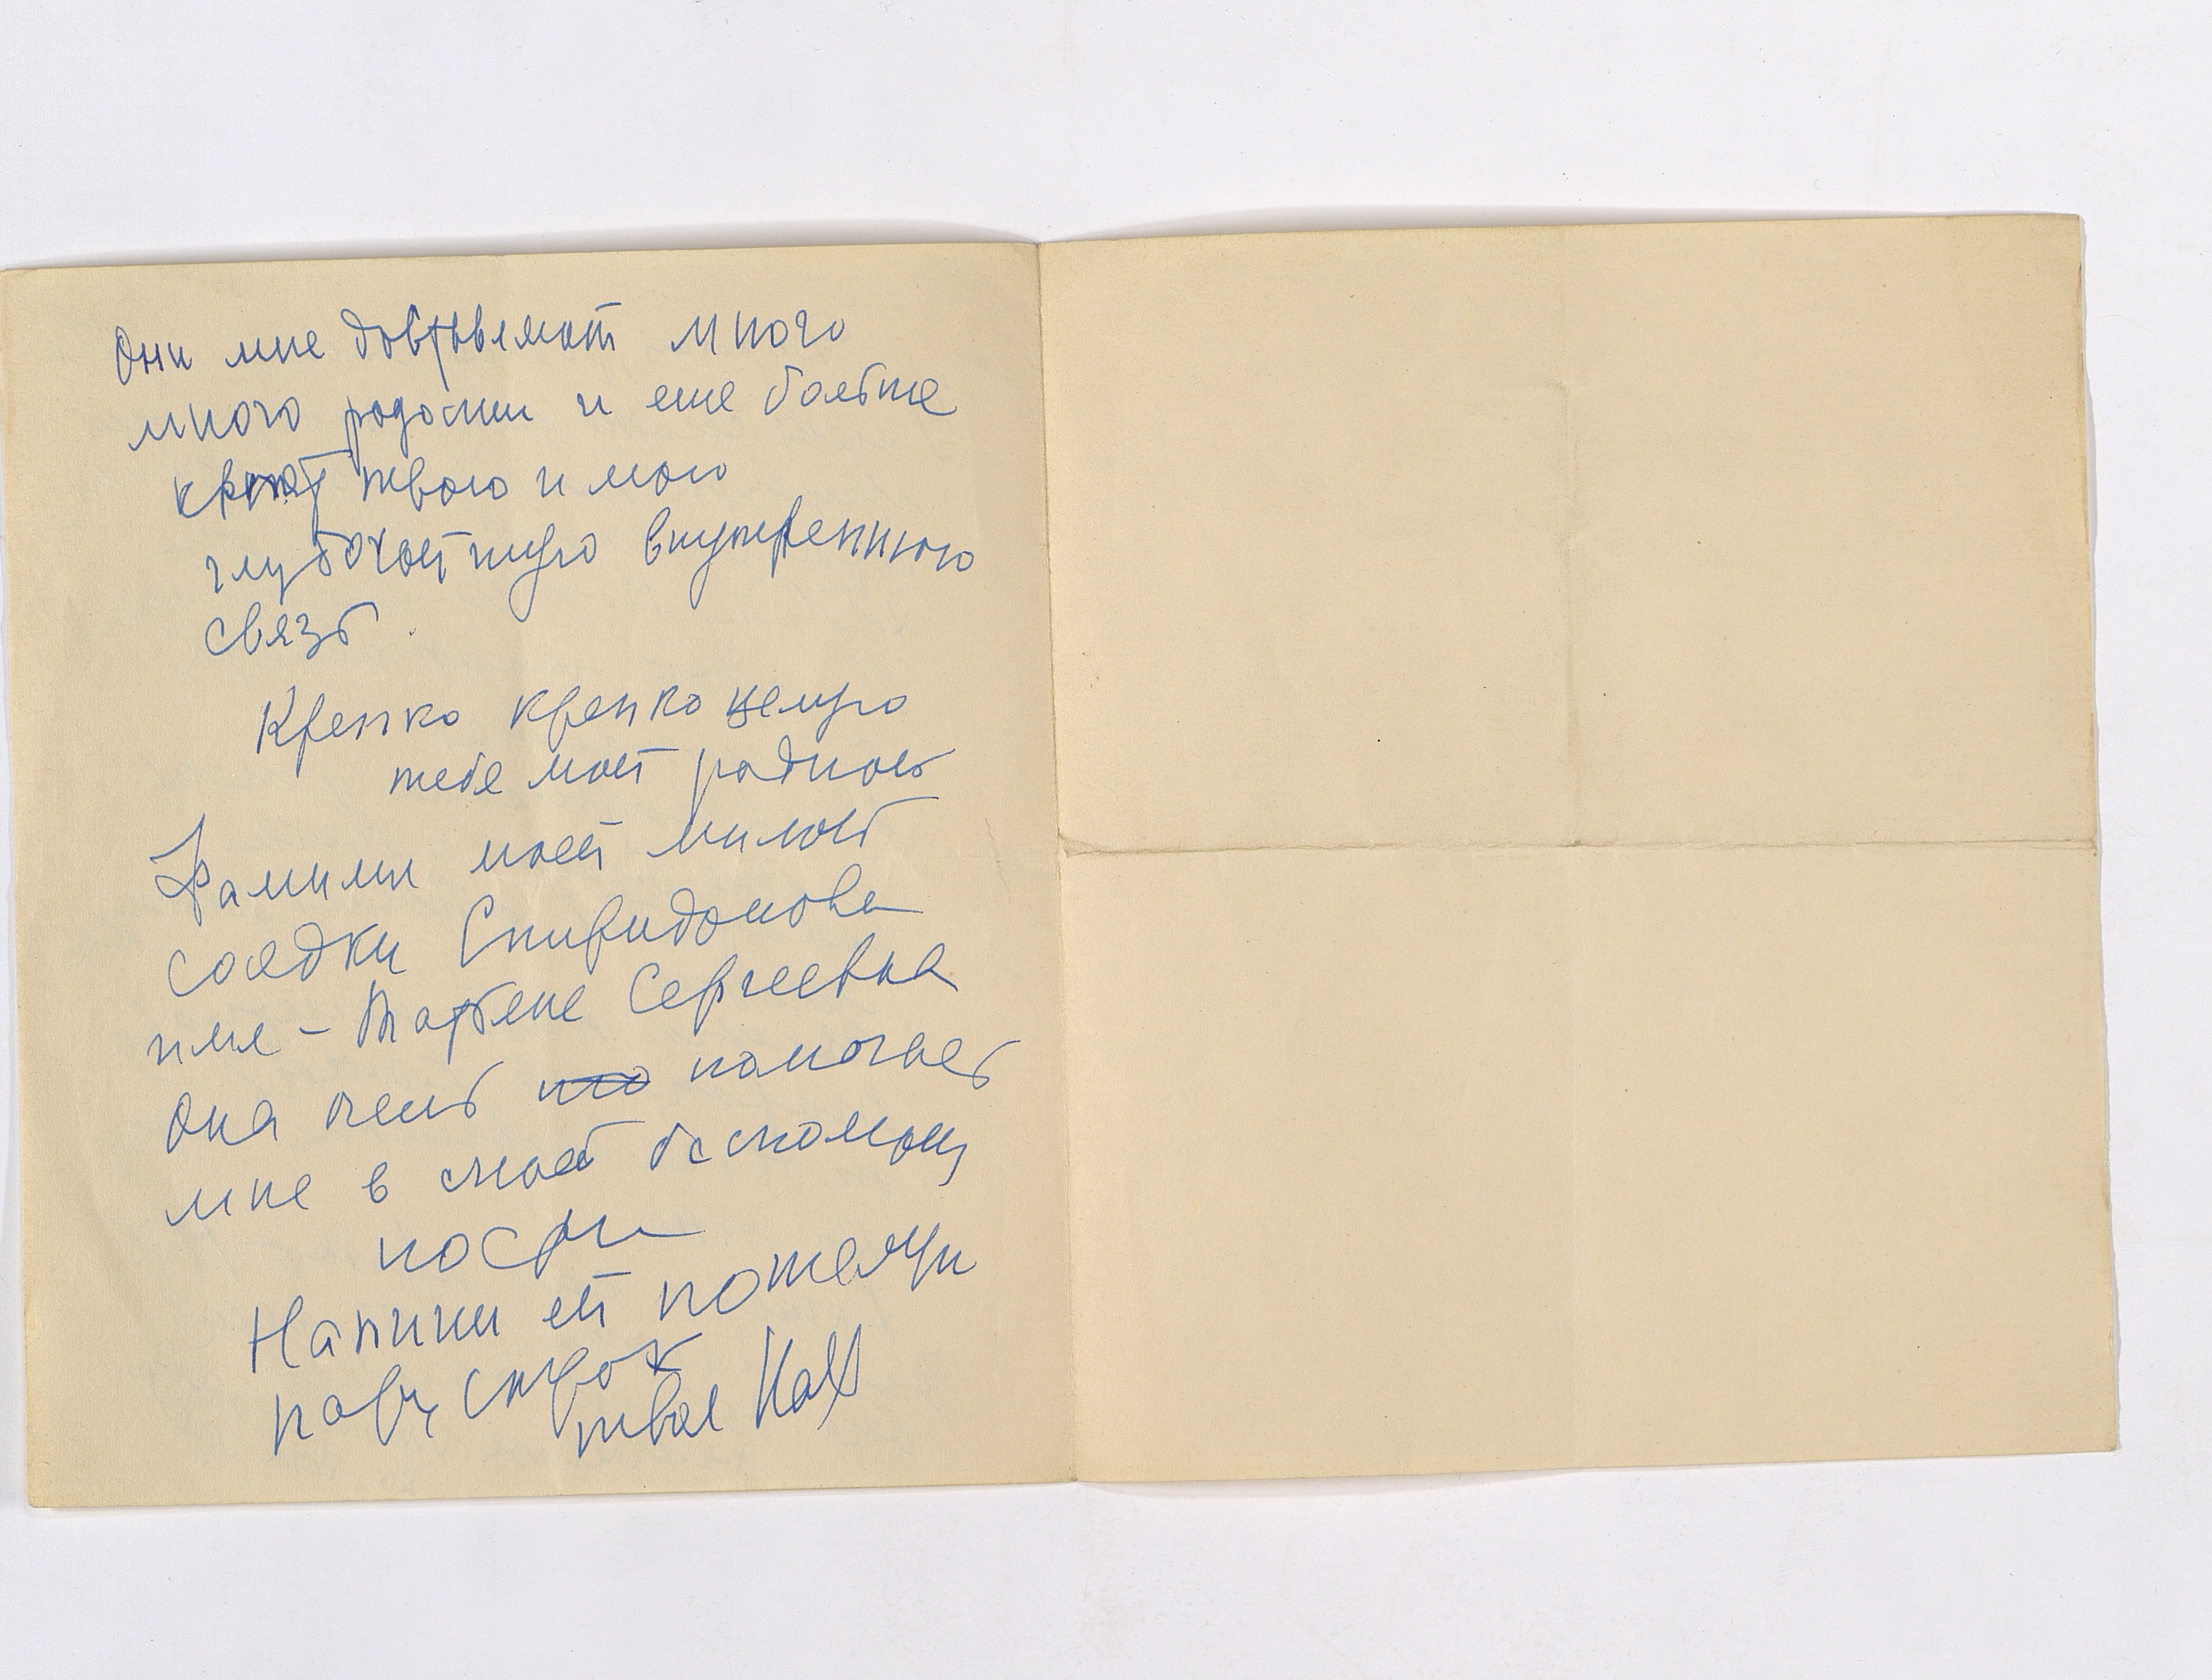 Они мне доставляют много
много радости и еще больше
твою и мою
глубочайшую внутреннюю
связь.
Крепко крепко целую
тебя мой родной
Фамилия моей милой
соседки Спиридонова
имя – Татьяна Сергеевна
Она очень помогает
мне в моей беспомощ
ности
Напиши ей пожалуй
пару строк
твоя